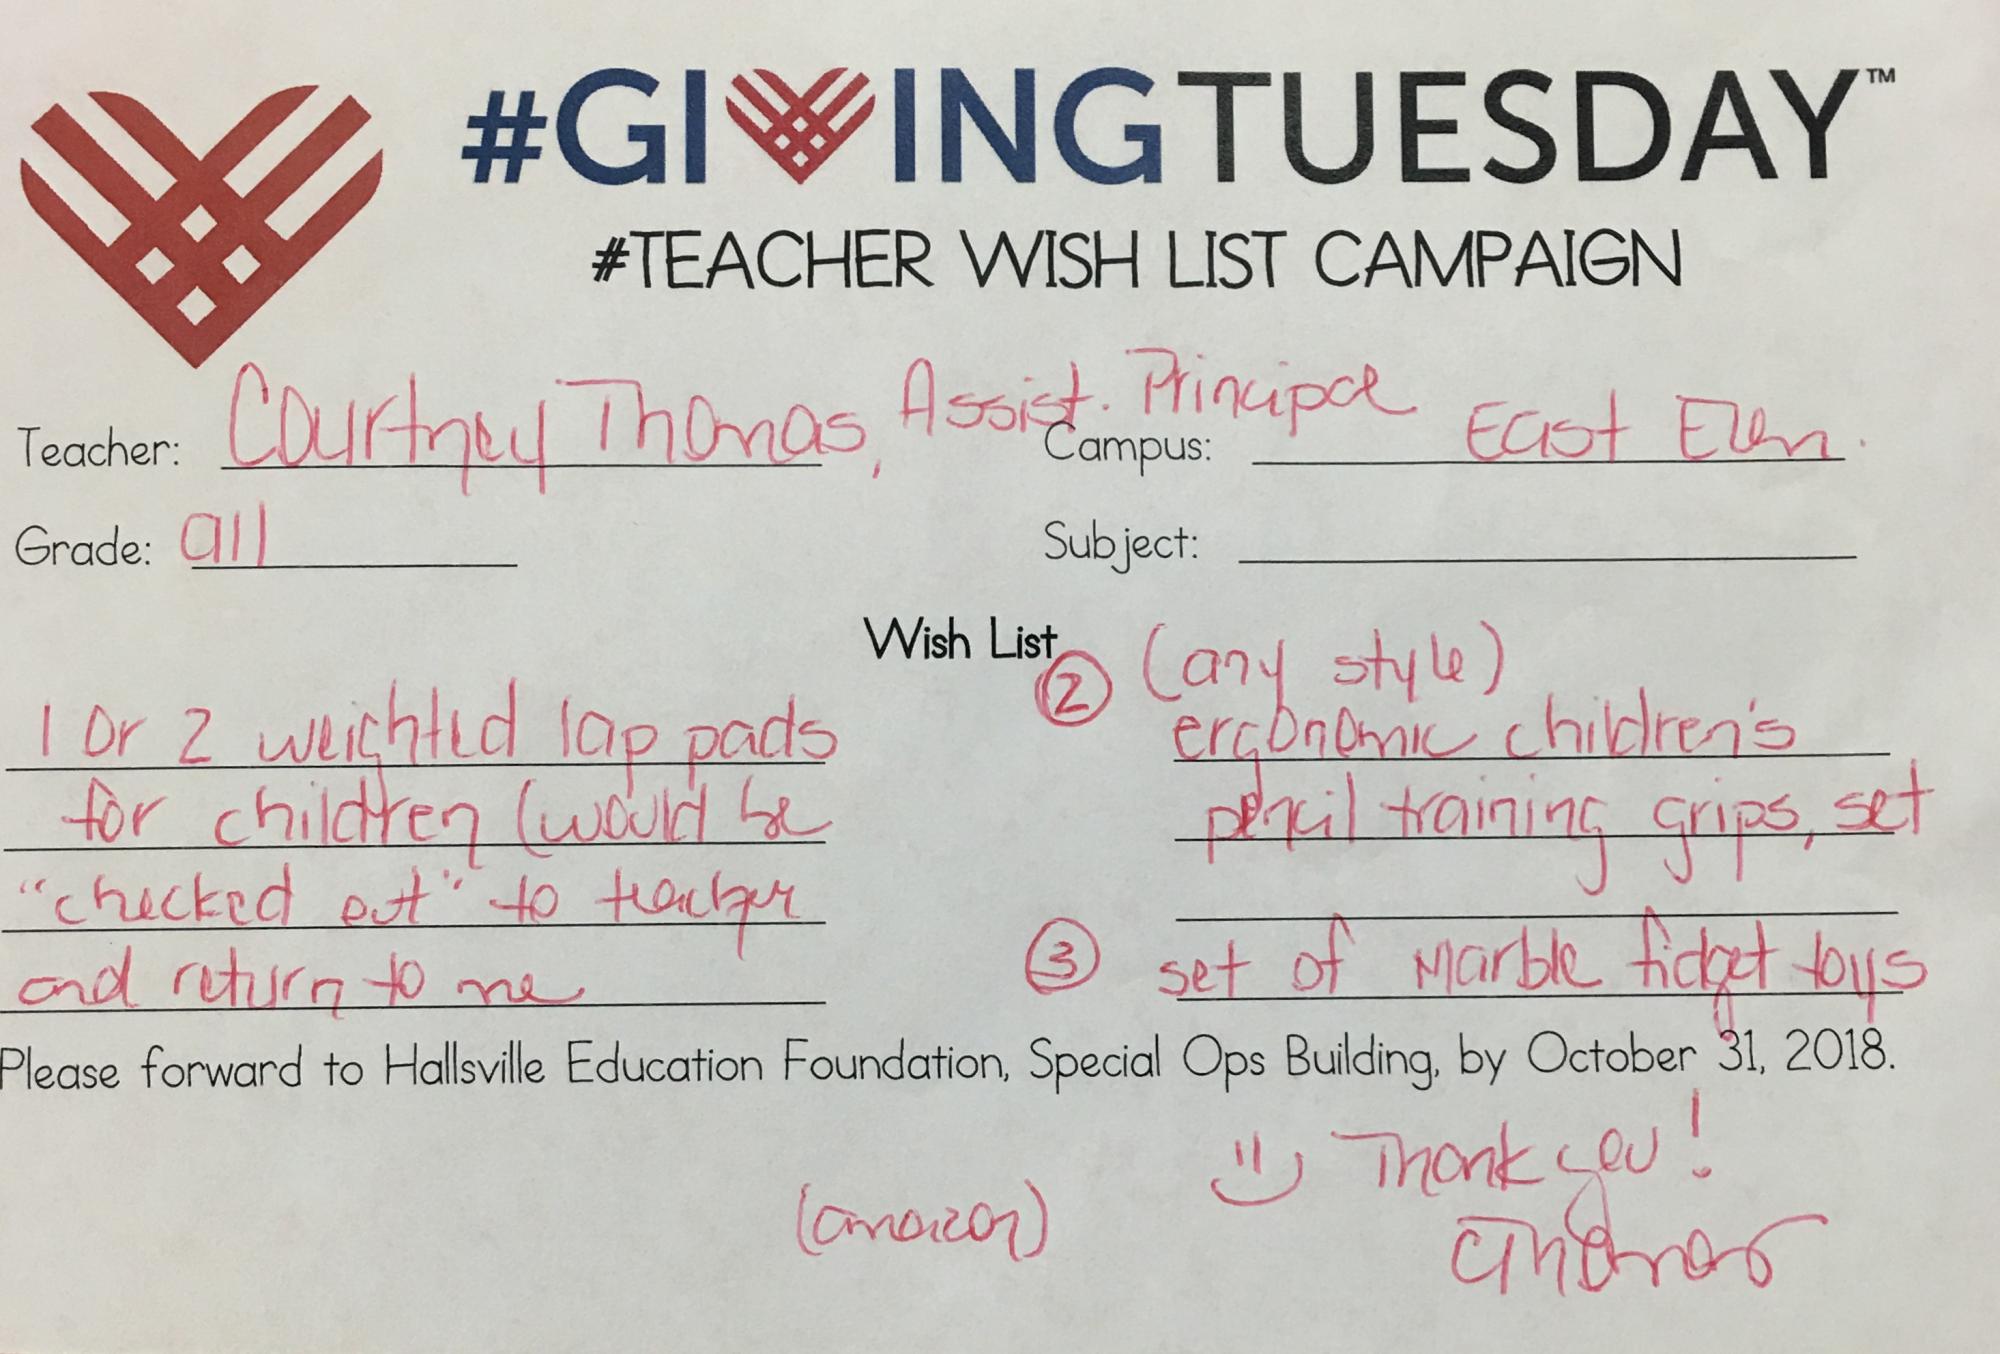 #GIVINGTUESDAY™
#TEACHER WISH LIST CAMPAIGN
Teacher: Courtney Thomas, Assist. Principal
Campus: East Elem.
Grade: all
Subject:
Wish List
1 or 2 weighted lap pads
for children (would be
"checked out" to teacher
and return to me
② (any style)
ergonomic children's
pencil training grips, set
③ set of Marble fidget toys
Please forward to Hallsville Education Foundation, Special Ops Building, by October 31, 2018.
Thank you!
(amazon)
CThomas